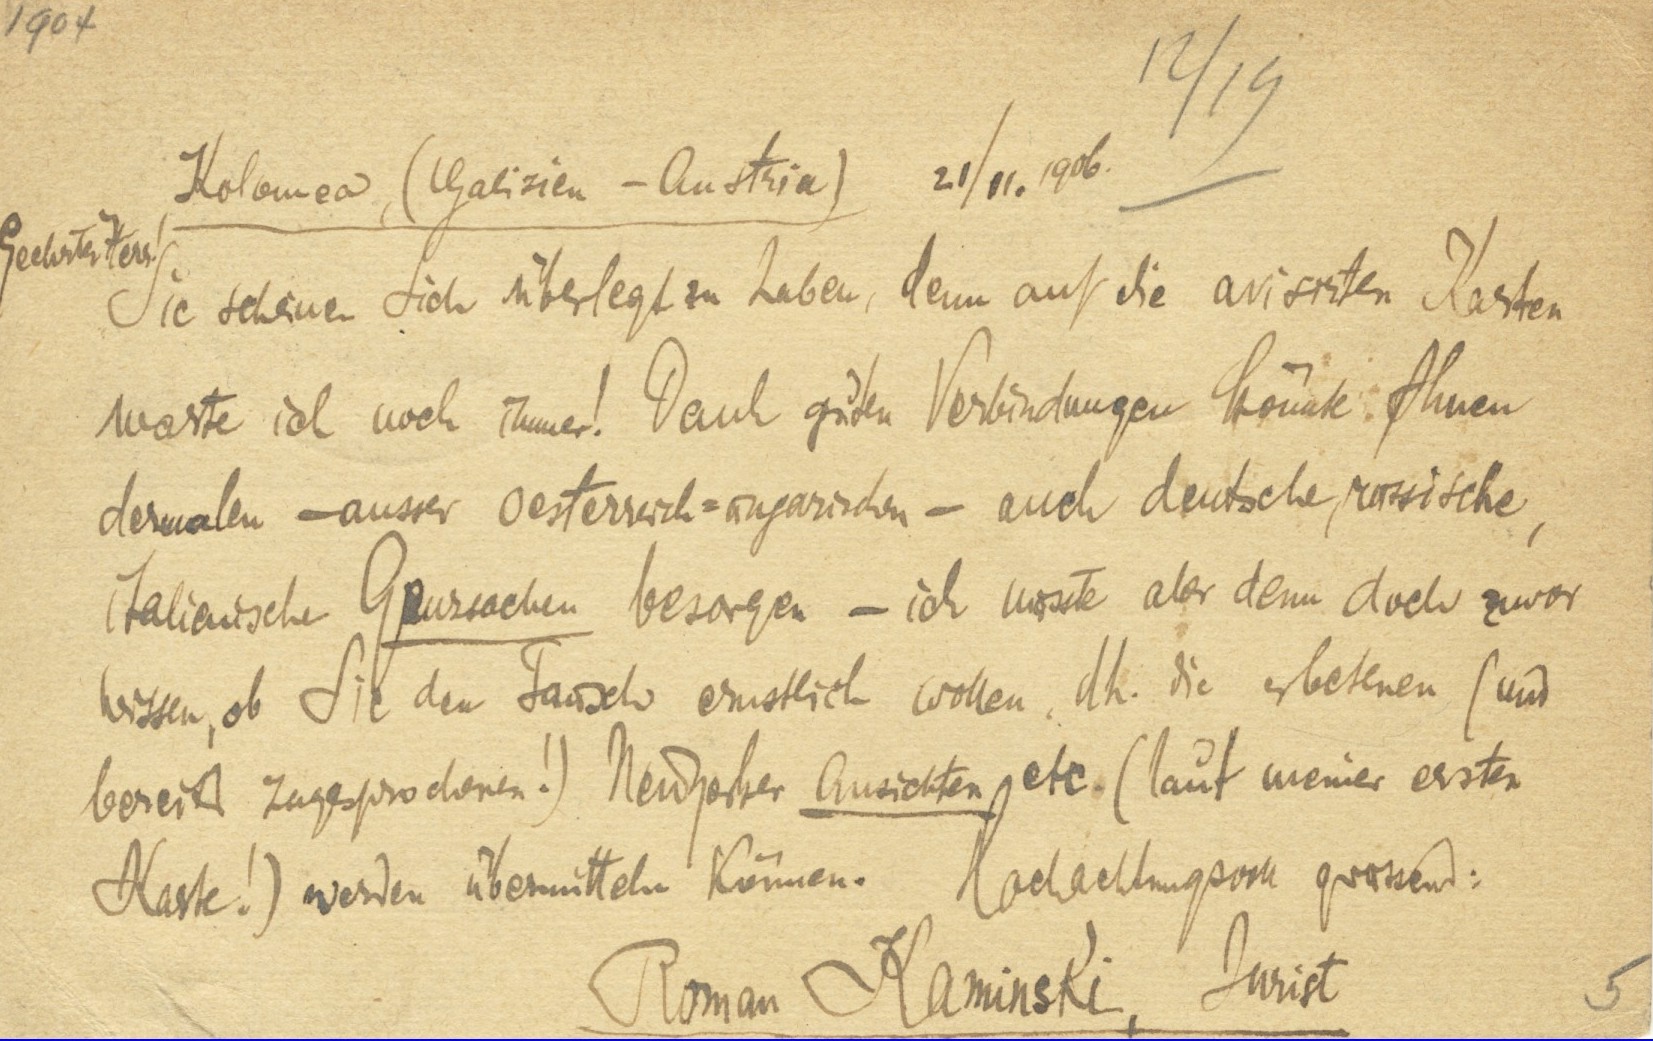 1904
12/19
Kolomea, (Galizien - Austria) 21/11. 1906.
Geehrter Herr!
Sie scheinen sich überlegt zu haben, denn auf die avisirten Karten
warte ich noch immer! Dank guten Verbindungen könnte Ihnen
dermalen - ausser oesterreich=ungarischen - auch deutsche, russische,
italienische besorgen - ich müsste aber denn doch zuvor
wissen, ob Sie den Tausch ernstlich wollen, dh. die erbetenen (und
bereits zugesprochenen!) Newyorker Ansichten etc. (laut meiner ersten
Karte!) werden übermitteln können. Hochachtungsvoll grüssend:
Roman Kaminski, Jurist
5